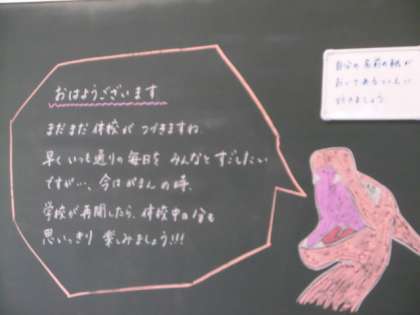 おはようございます
まだまだ休校が つづきますね
早く いつも通りの毎日を みんなと すごしたい
ですが、今はがまんの時、
学校が再開したら、休校中の分も
思いっきり 楽しみましょう!!!
自分の名前の紙が
おいてあるいすに